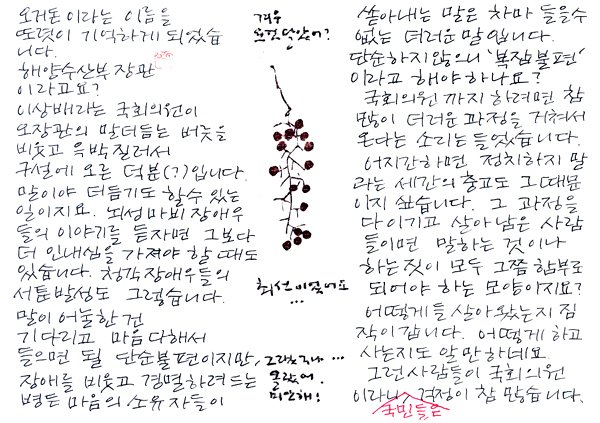 오거돈이라는 이름을
또렷이 기억하게 되었습
니다.
해양수산부장관
이라고요?
이상배라는 국회의원이
오장관의 말더듬는 버릇을
비웃고 윽박질러서
구설에 오른 덕분(?)입니다.
말이야 더듬기도 할수 있는
일이지요. 뇌성마비 장애우
들의 이야기를 듣자면 그보다
더 인내심을 가져야 할 때도
있습니다. 청각장애우들의
서툰발성도 그렇습니다.
말이 어눌한 건
기다리고 마음 다해서
들으면 될 단순불편이지만,
장애를 비웃고 경멸하려드는
병든 마음의 소유자들이
겨우
요것 달았어?
최선이었어요
...
그랬구나 ...
몰랐어.
미안해!
쏟아내는 말은 차마 들을수
없는 더러운 말입니다.
단순하지 않으니 '복잡불편'
이라고 해야 하나요?
국회의원 까지 하려면 참
많이 더러운 과정을 거쳐서
온다는 소리는 들었습니다.
어지간하면 정치하지 말
라는 세간의 충고도 그 때문
이지 싶습니다. 그 과정을
다 이기고 살아남은 사람
들이면 말하는 것이나
하는짓이 모두 그쯤 함부로
되어야 하는 모양이지요?
어떻게들 살아왔는지 짐
작이 갑니다. 어떻게 하고
사는지도 알 만하네요.
그런사람들이 국회의원
이라니, 걱정이 참 많습니다.
국민들은